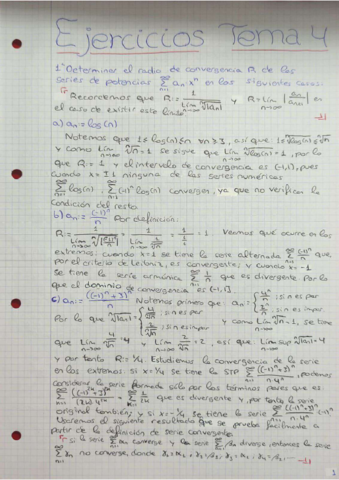 Ejercicios Tema 4
1º Determinar el radio de convergencia R de las
series de potencias ∑ aₙxⁿ en los siguientes casos:
Recordemos que R = 1/lim ⁿ√|aₙ| y R = lim |aₙ/aₙ₊₁| en
el caso de existir este límite
a) aₙ = log(n)
Notemos que 1 ≤ log(n) ≤ n ∀n ≥ 1, así que 1 ≤ ⁿ√log(n) ≤ ⁿ√n
y como lim ⁿ√n = 1 se sigue que lim ⁿ√log(n) = 1, por lo
que R = 1 y el intervalo de convergencia es (-1,1), pues
cuando x = ±1 ninguna de las series numéricas
∑ log(n); ∑ (-1)ⁿ log(n) convergen, ya que no verifican la
condición del resto
b) aₙ = (-1)ⁿ/n Por definición:
R = = 1. Veamos qué ocurre en los
extremos: cuando x = 1 se tiene la serie alternada ∑ (-1)ⁿ/n que
por el criterio de Leibniz, es convergente; y cuando x = -1
se tiene la serie armónica ∑ 1/n que es divergente por lo
que el dominio de convergencia es (-1,1]
c) aₙ = ((-1)ⁿ+3)ⁿ/n Notemos primero que: aₙ = { 4ⁿ/n : si n es par
2ⁿ/n : si n es impar
Por lo que ⁿ√|aₙ| = : si n es par
: si n es impar y como lim ⁿ√n = 1, se tiene
que lim 4/ⁿ√n = 4 y lim 2/ⁿ√n = 2, así que = 4
y por tanto R = 1/4. Estudiemos la convergencia de la serie
en los extremos: si x = 1/4 se tiene la STP ∑ ((-1)ⁿ+3)ⁿ/n·4ⁿ, podemos
considerar la serie formada sólo por los términos pares que es
que es divergente y, por tanto la serie
original también; y si x = -1/4 se tiene la serie ∑ ((-1)ⁿ+3)ⁿ/n·4ⁿ (-1)ⁿ
Usaremos el siguiente resultado que se prueba fácilmente a
partir de la definición de serie convergente:
Si la serie ∑ converge y la serie ∑ diverge, entonces la serie
∑ no converge, donde
1